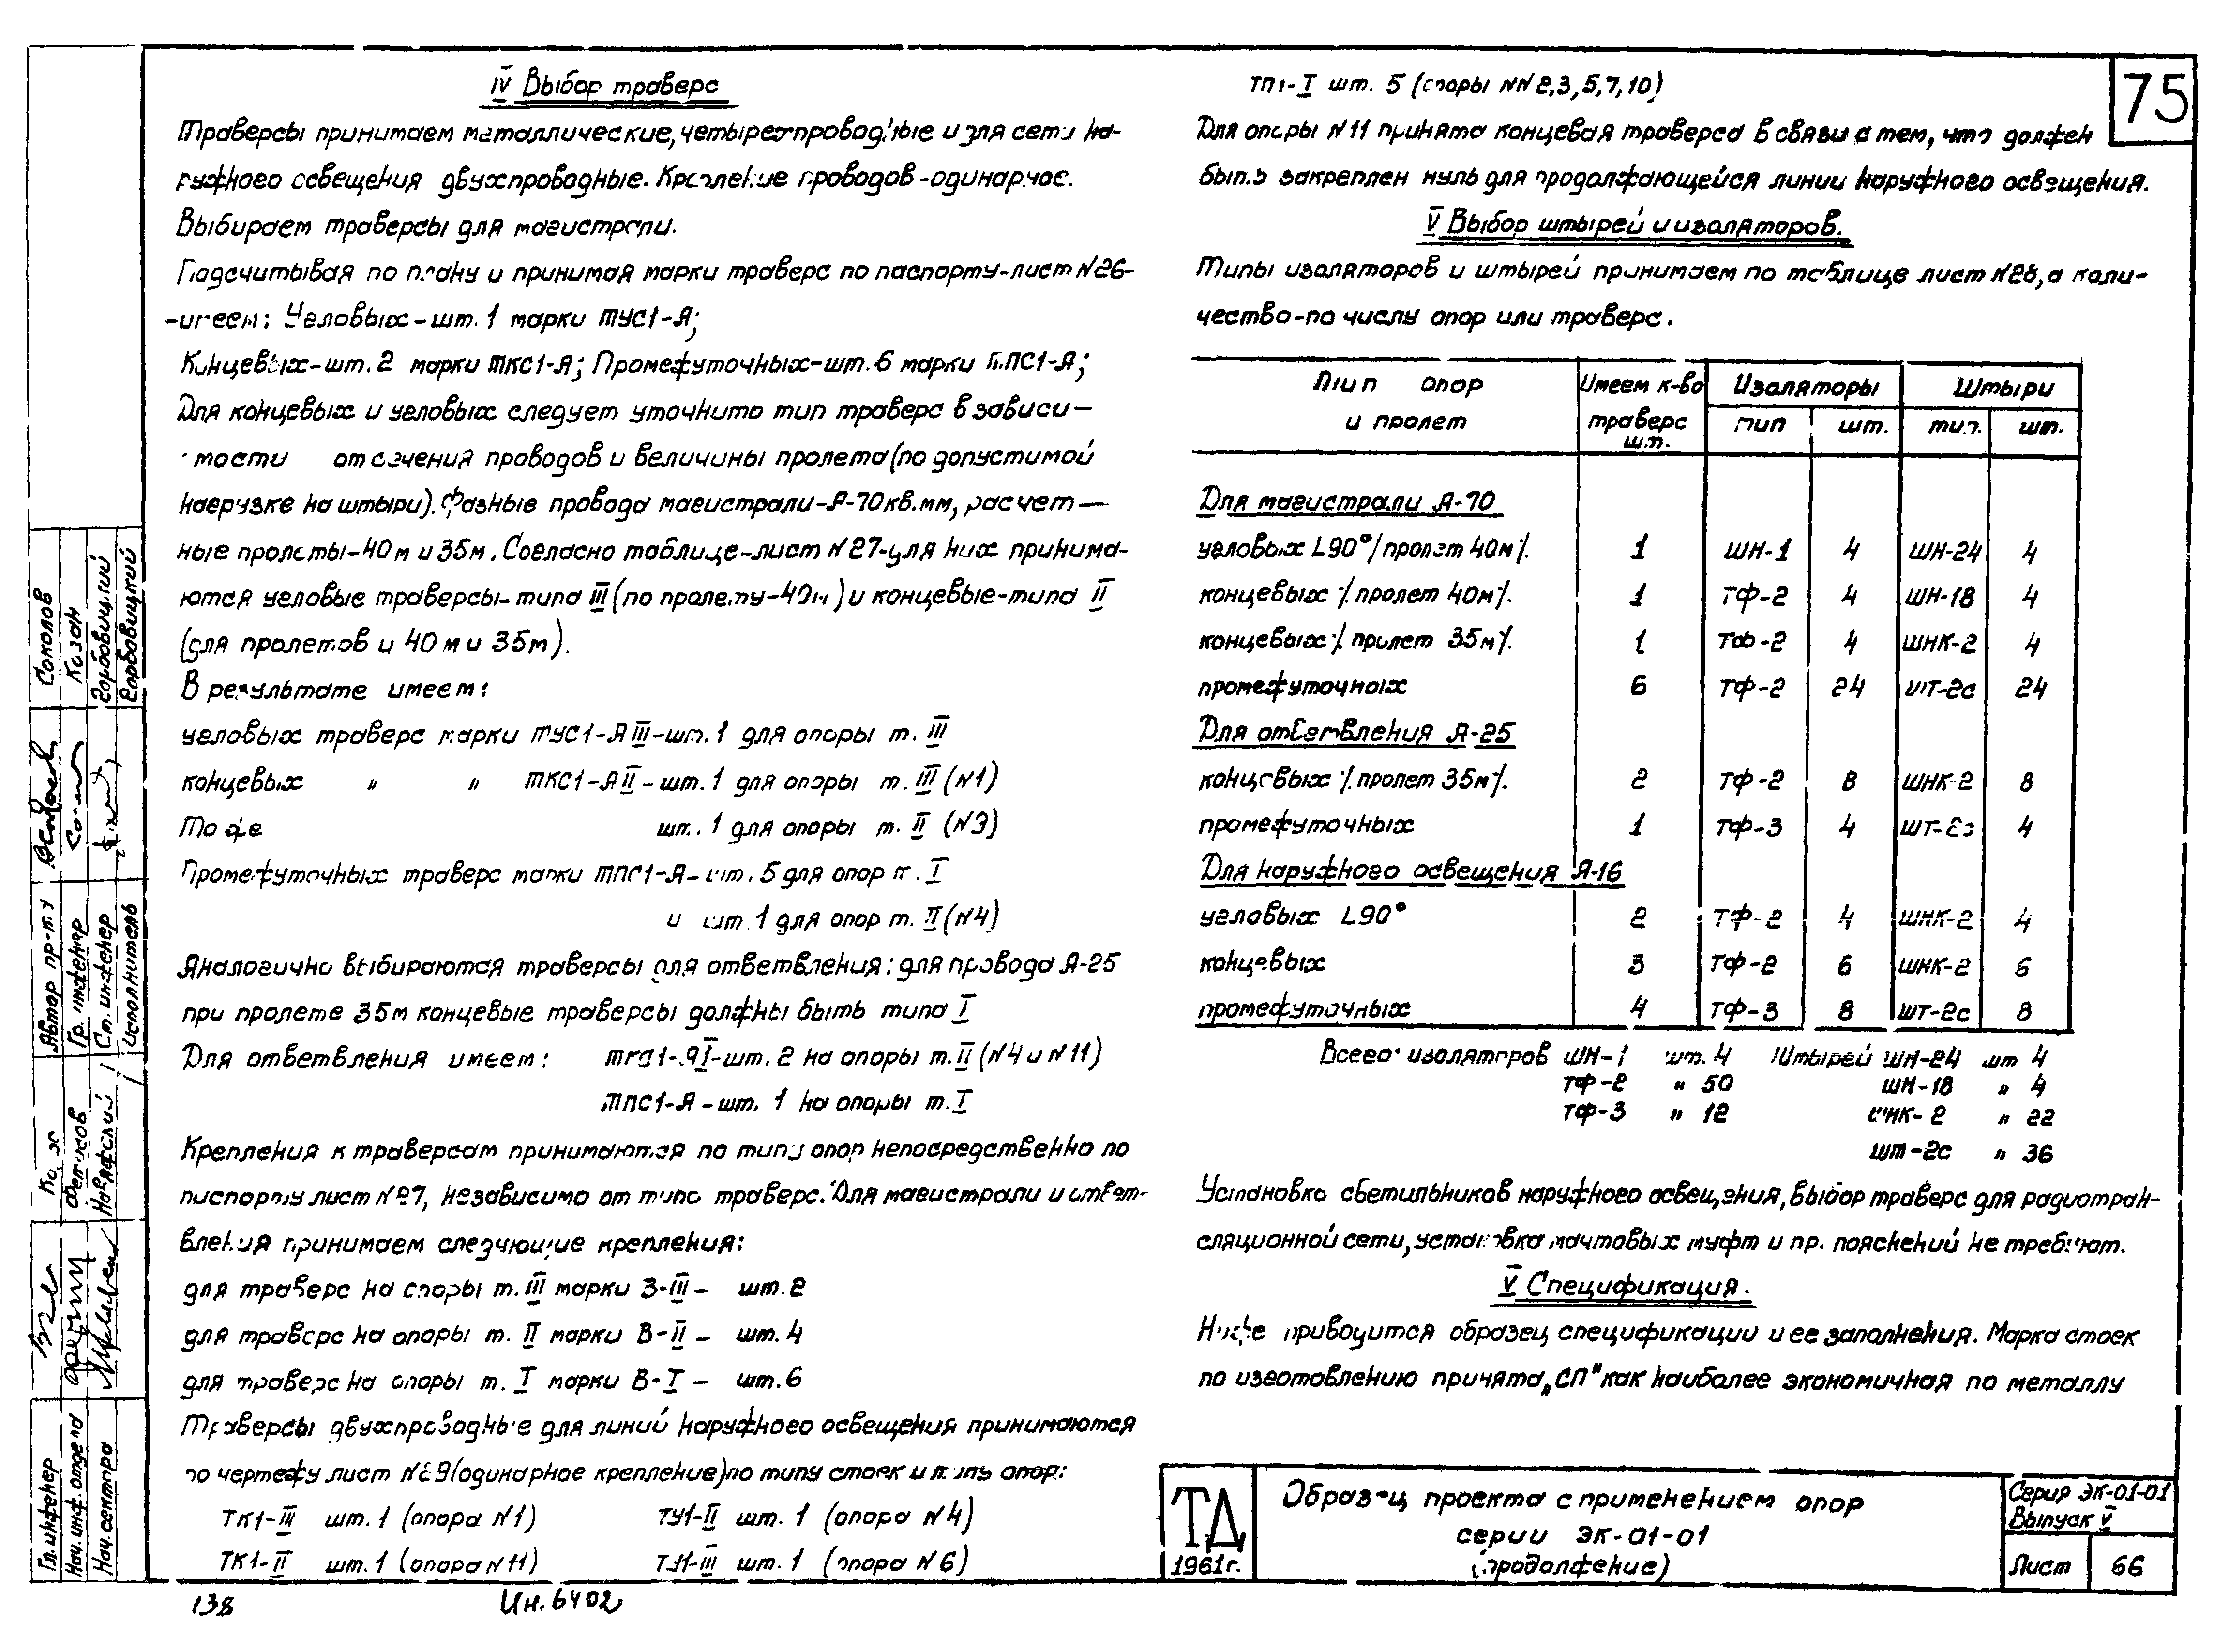 IV Выбор траверс
Траверсы принимаем металлические, четырехпроводные и для сети на-
ружного освещения двухпроводные. Крепление проводов - одинарное.
Выбираем траверсы для магистрали.
Подсчитывая по плану и принимая марки траверс по паспорту-лист №26-
-имеем: Угловых - шт. 1 марки ТУС1-А;
Концевых - шт. 2 марки ТКС1-А; Промежуточных - шт. 6 марки ТПС1-А;
Для концевых и угловых следует уточнить тип траверс в зависи-
мости от сечения проводов и величины пролета (по допустимой
нагрузке на штыри). Фазные провода магистрали - А-70 кв.мм, расчет-
ные пролеты - 40 м и 35 м. Согласно таблице - лист №27 - для них принима-
ются угловые траверсы - типа III (по пролету - 40 м) и концевые - типа II
(для пролетов и 40 м и 35 м).
В результате имеем:
угловых траверс марки ТУС1-А III - шт. 1 для опоры т. III
концевых " " ТКС1-А II - шт. 1 для опоры т. III (N1)
То же шт. 1 для опоры т. II (N3)
Промежуточных траверс марки ТПС1-А - шт. 5 для опор т. I
и шт. 1 для опор т. II (N4)
Аналогично выбираются траверсы для ответвления: для провода А-25
при пролете 35 м концевые траверсы должны быть типа I
Для ответвления имеем: ТКС1-АI - шт. 2 на опоры т. II (N4 и N11)
ТПС1-А - шт. 1 на опоры т. I
Крепления к траверсам принимаются по типу опор непосредственно по
паспорту лист №27, независимо от типа траверс. Для магистрали и ответ-
вления принимаем следующие крепления:
для траверс на опоры т. III марки З-III - шт. 2
для траверс на опоры т. II марки В-II - шт. 4
для траверс на опоры т. I марки В-I - шт. 6
Траверсы двухпроводные для линий наружного освещения принимаются
по чертежу лист №29 (одинарное крепление) по типу стоек и типу опор:
ТК1-III шт. 1 (опора N1) ТУ1-II шт. 1 (опора N4)
ТК1-II шт. 1 (опора N11) ТУ1-III шт. 1 (опора N6)
ТП1-I шт. 5 (опоры NN 2, 3, 5, 7, 10)
75
Для опоры N11 принята концевая траверса в связи с тем, что должен
быть закреплен нуль для продолжающейся линии наружного освещения.
V Выбор штырей и изоляторов.
Типы изоляторов и штырей принимаем по таблице лист №28, а коли-
чество - по числу опор или траверс.
Тип опор Имеем к-во Изоляторы Штыри
и пролет траверс тип шт. тип. шт.
шт.
Для магистрали А-70
угловых L90° /пролет 40м/. 1 ШН-1 4 ШН-24 4
концевых /пролет 40м/. 1 ТФ-2 4 ШН-18 4
концевых /пролет 35м/. 1 ТФ-2 4 ШНК-2 4
промежуточных 6 ТФ-2 24 ШТ-2с 24
Для ответвления А-25
концевых /пролет 35м/. 2 ТФ-2 8 ШНК-2 8
промежуточных 1 ТФ-3 4 ШТ-2с 4
Для наружного освещения А-16
угловых L90° 2 ТФ-2 4 ШНК-2 4
концевых 3 ТФ-2 6 ШНК-2 6
промежуточных 4 ТФ-3 8 ШТ-2с 8
Всего: изоляторов ШН-1 шт. 4 Штырей ШН-24 шт 4
ТФ-2 " 50 ШН-18 " 4
ТФ-3 " 12 ШНК-2 " 22
ШТ-2с " 36
Установка светильников наружного освещения, выбор траверс для радиотран-
сляционной сети, установка мачтовых муфт и пр. пояснений не требуют.
V Спецификация.
Ниже приводится образец спецификации и ее заполнения. Марка стоек
по изготовлению принята „СП" как наиболее экономичная по металлу
ТД
1961г.
Образец проекта с применением опор
серии ЭК-01-01
(продолжение)
Серия ЭК-01-01
Выпуск V
Лист 66
Соколов
Козан
Горбовицкий
Горбовицкий
Автор пр-та
Гр. инженер
Ст. инженер
Исполнитель
Гл. инженер
Нач. инж. отдела
Нач. сектора
138
Ин. 6402